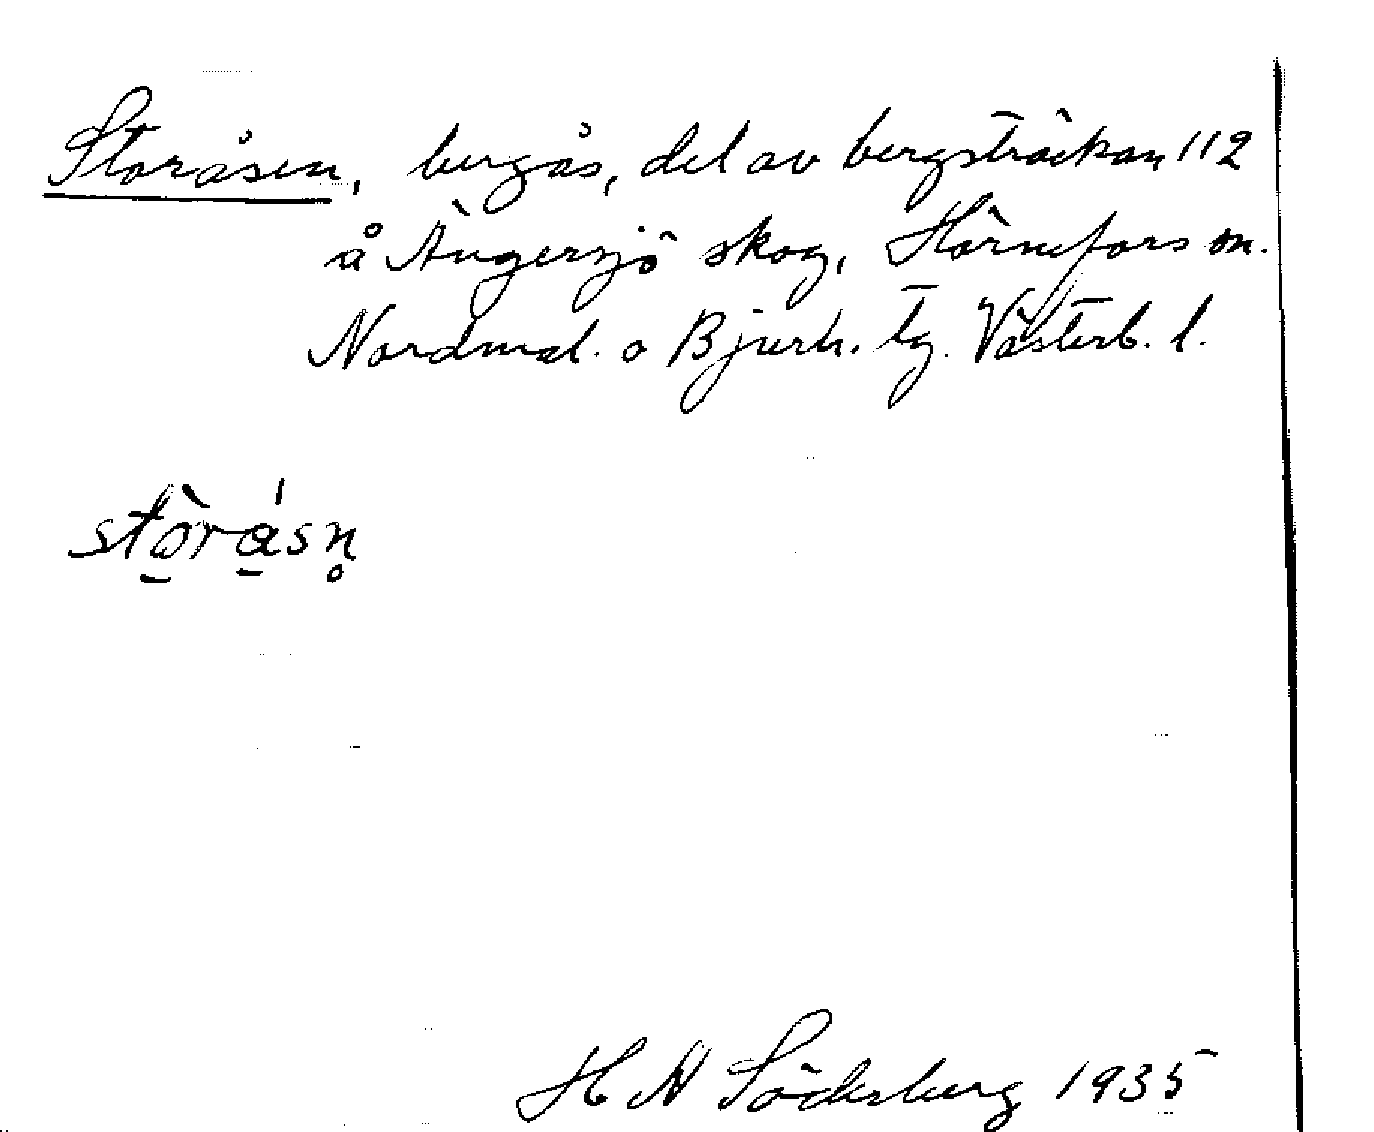 Storåsen, bergås, del av bergsträckan 112
å Ängersjö skog, Hörnefors sn.
Nordmal. o Bjurh. tg. Västerb. l.
stò̱rá̱sn̥
H N Söderberg 1935